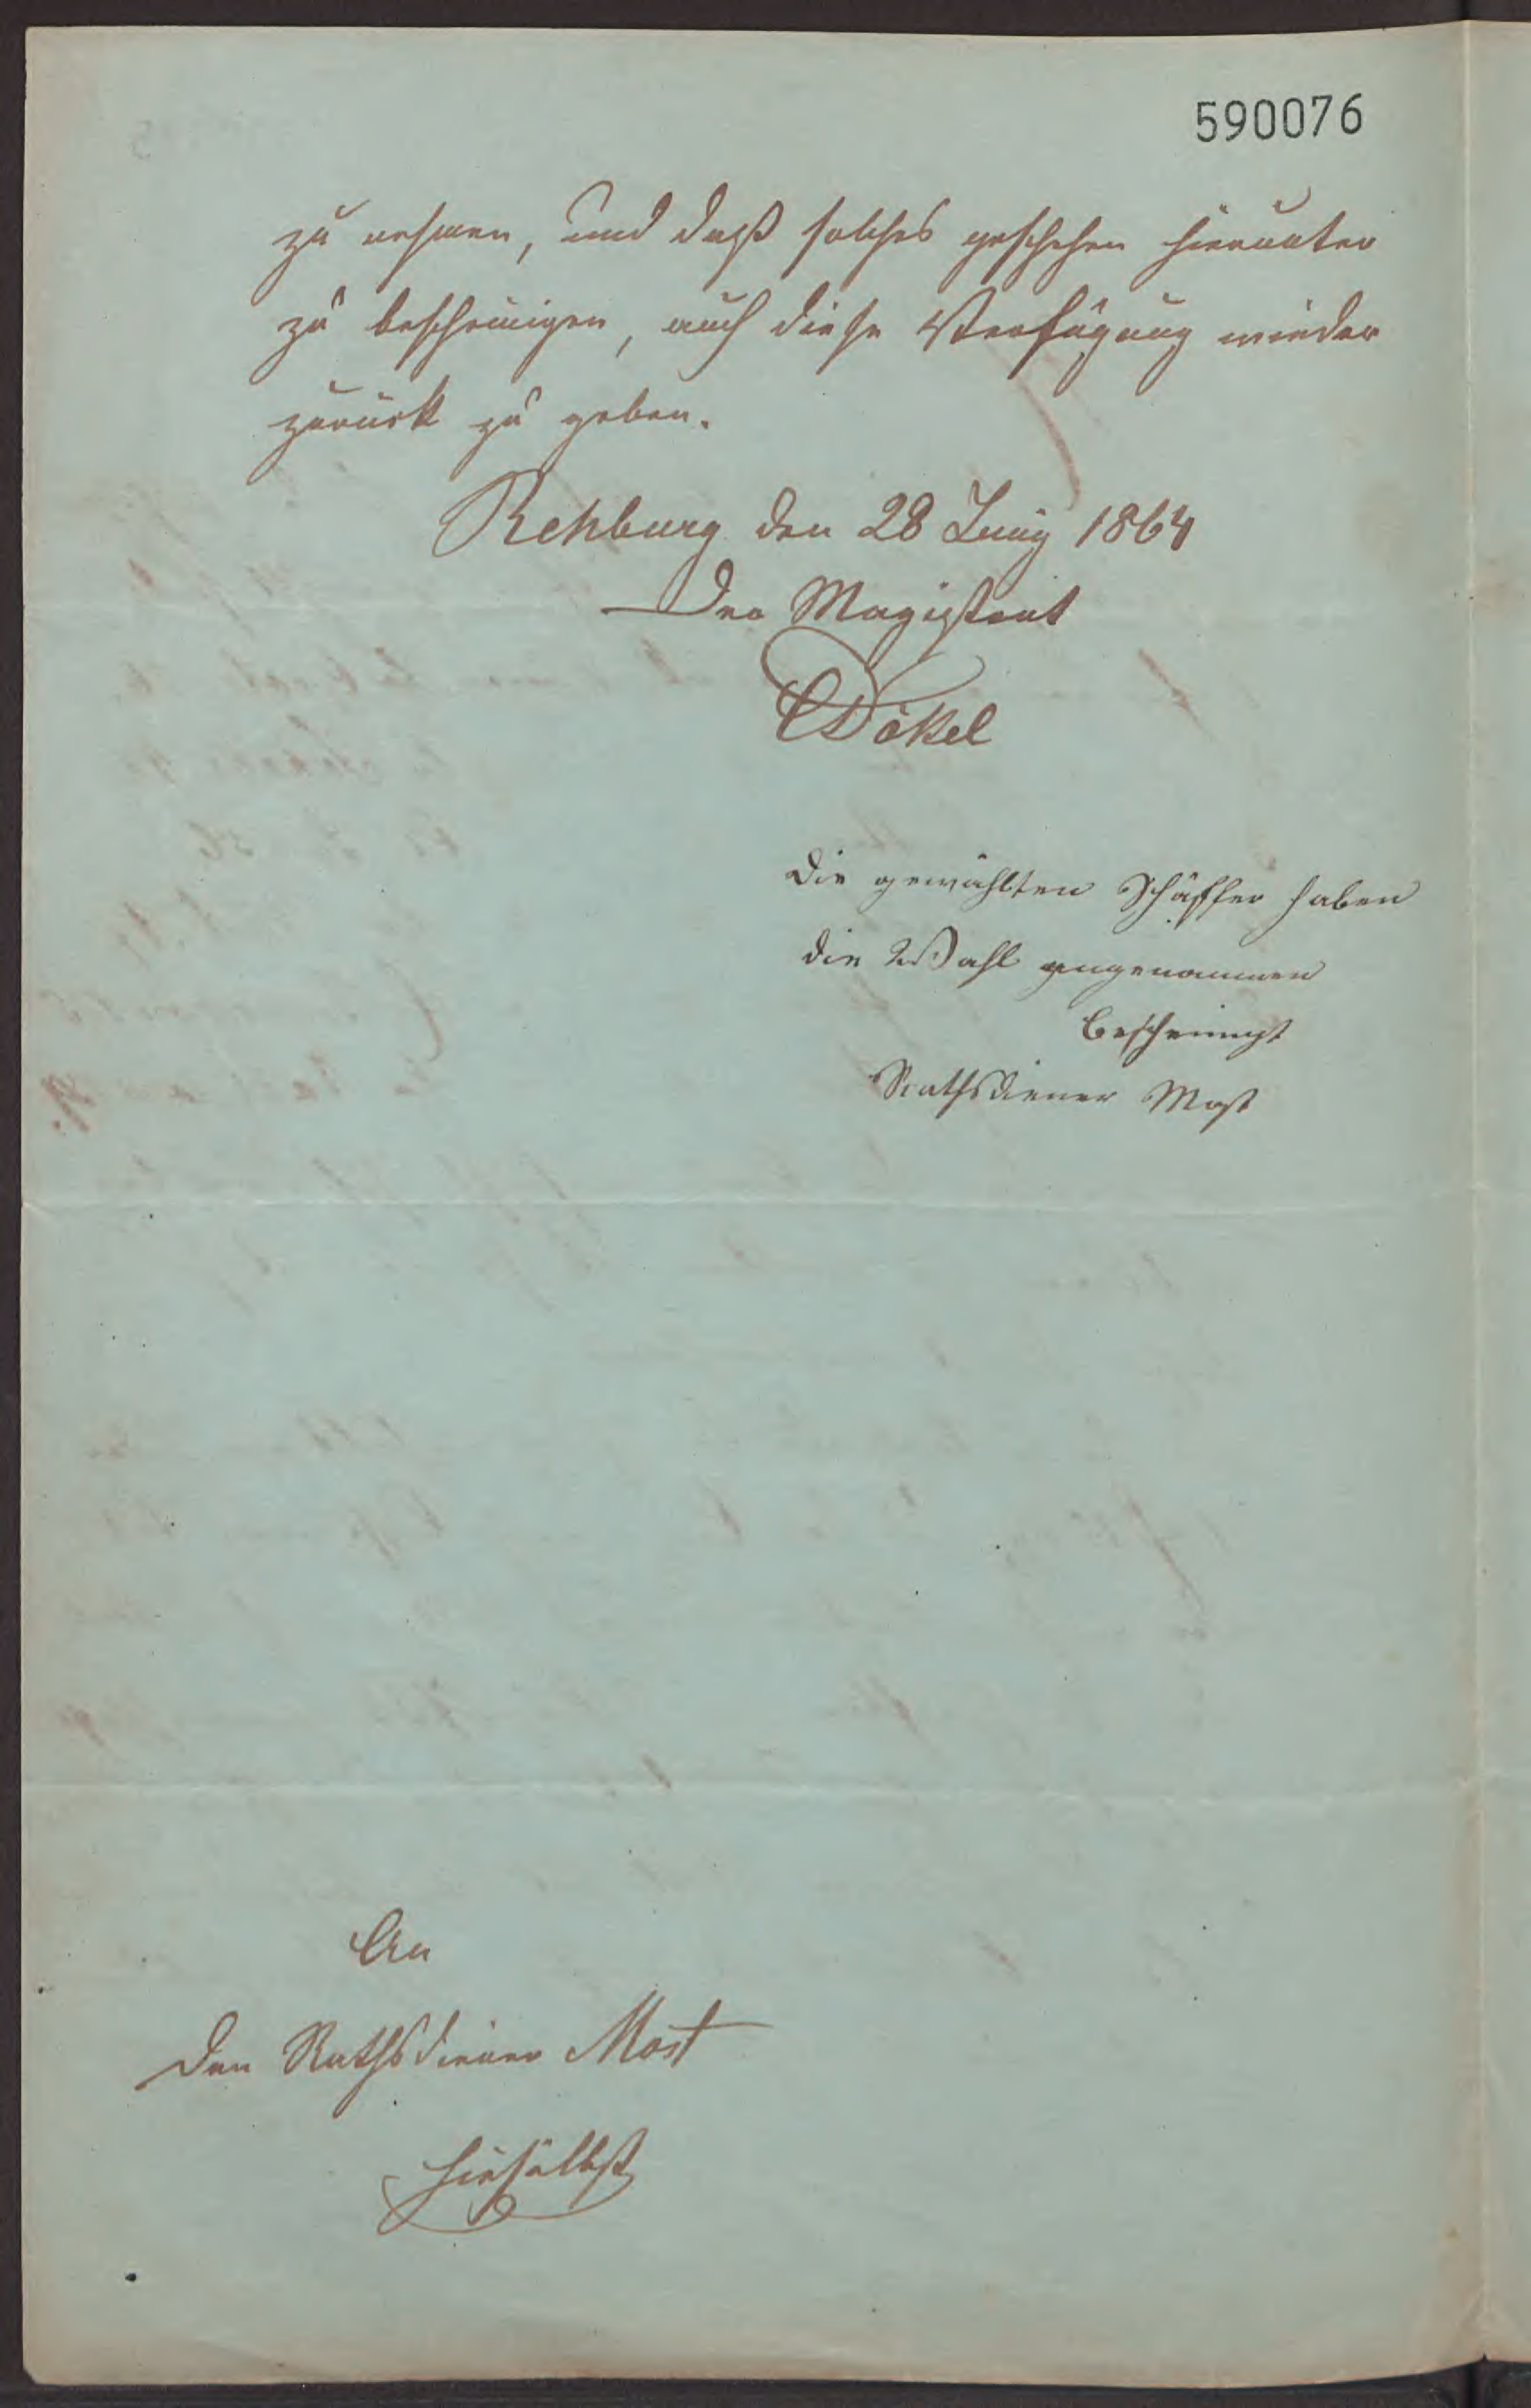 590076
zu nehmen, und daß solches geschehen hierunter
zu bescheinigen, auch diese Verfügung wieder
zurück zu geben.
Rehburg den 28 Juny 1864
Der Magistrat
Dökel
Die gewählten Schäffer haben
die Wahl angenommen
bescheinigt
Rathsdiener Most
An
Den Rathsdiener Most
hieselbst